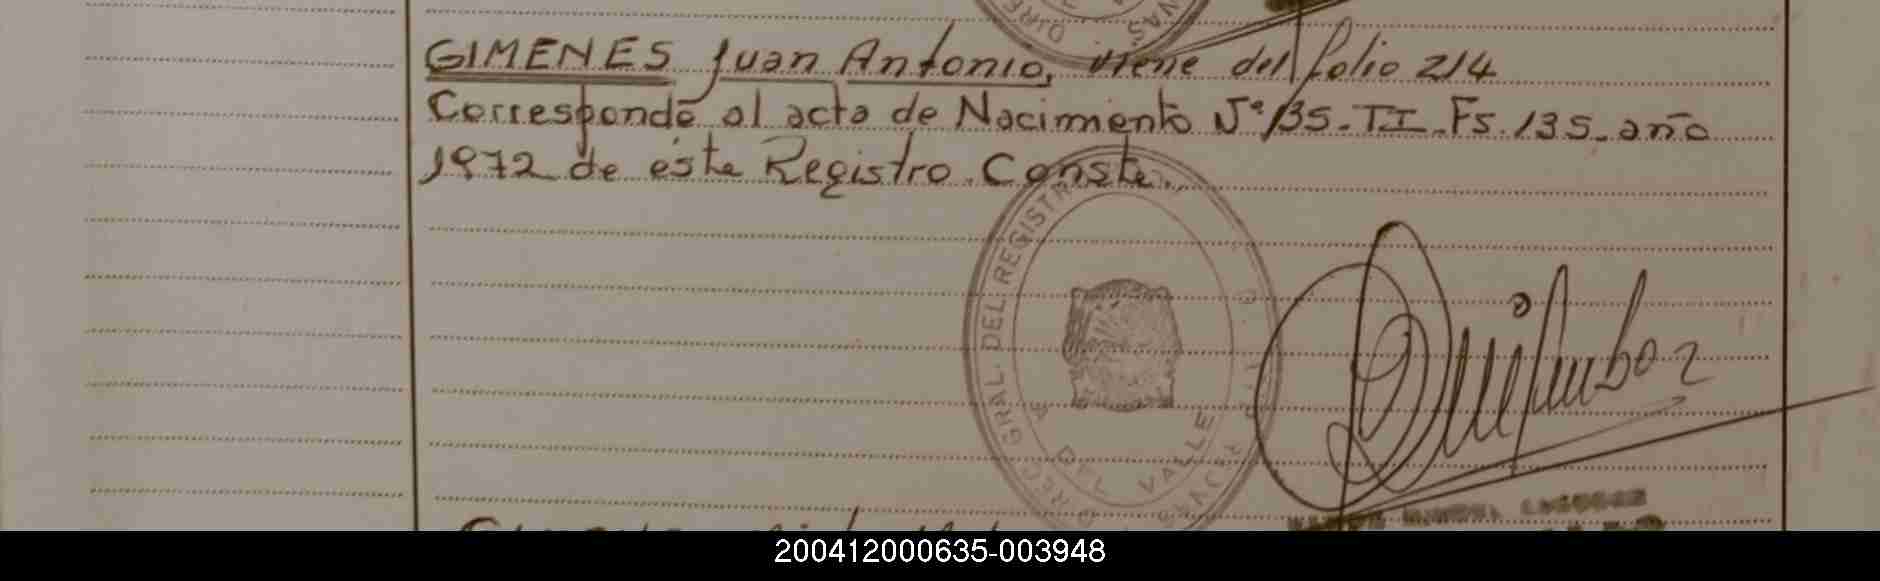 GIMENES Juan Antonio, viene del folio 214
Corresponde al acta de Nacimiento Nº 135 - TI - Fs. 135 - año
1972 de éste Registro. Conste.
GRAL. DEL REGISTR
DEL VALLE
200412000635-003948